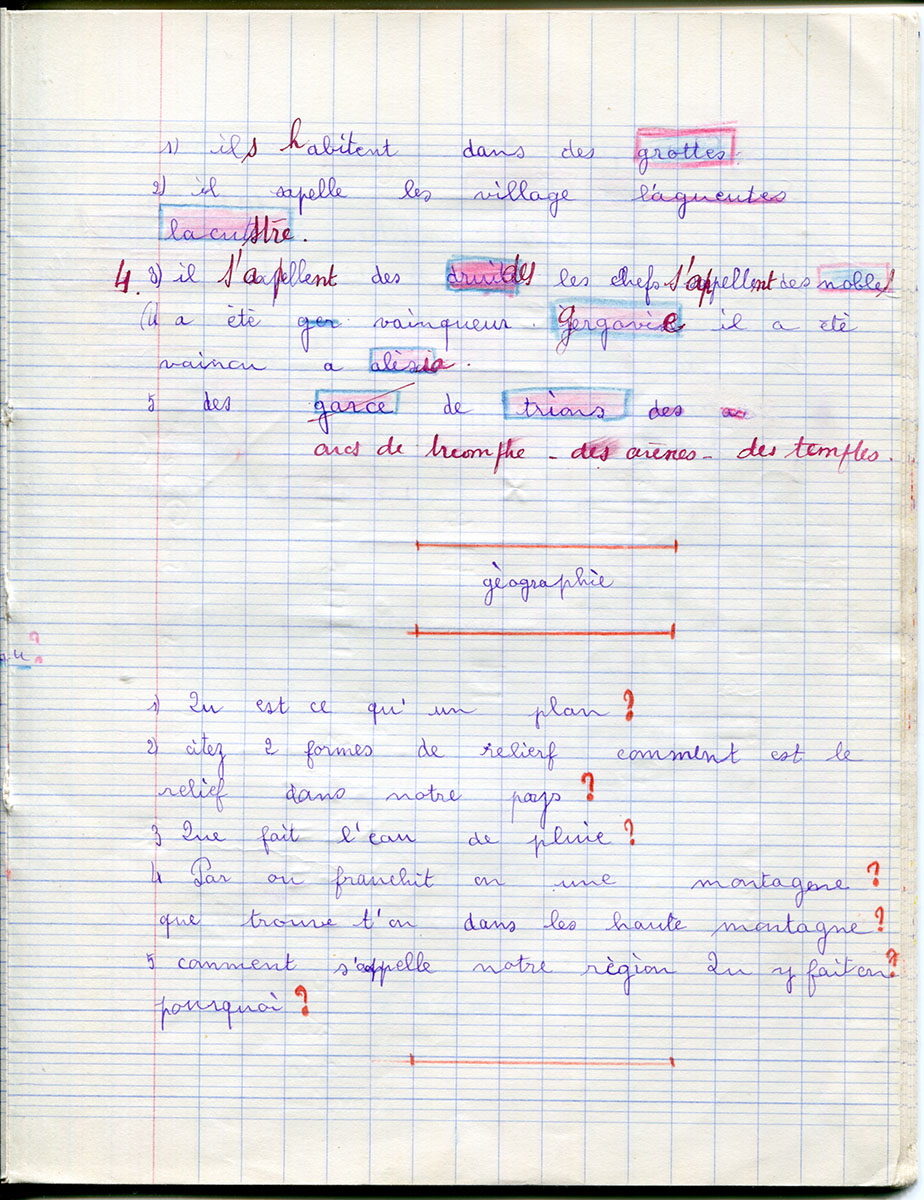 1) ils habitent dans des grottes.
2) il sapelle les village lagueutes
lacustre.
4. 3) il s'apellent des druides les chefs s'appellent des nobles
(4 a été ger vainqueur. Gergovie il a été
vaincu a alésia.
5 des garce de trions des
arcs de triomphe - des arènes - des temples.
gèographie
1) Qu est ce qu'un plan ?
2) citez 2 formes de relierf comment est le
relief dans notre pays ?
3 Que fait l'eau de pluie ?
4 Par ou franchit on une montagene ?
que trouve t'on dans les haute montagne ?
5 comment s'appelle notre règion Qu y fait on ?
pourquoi ?